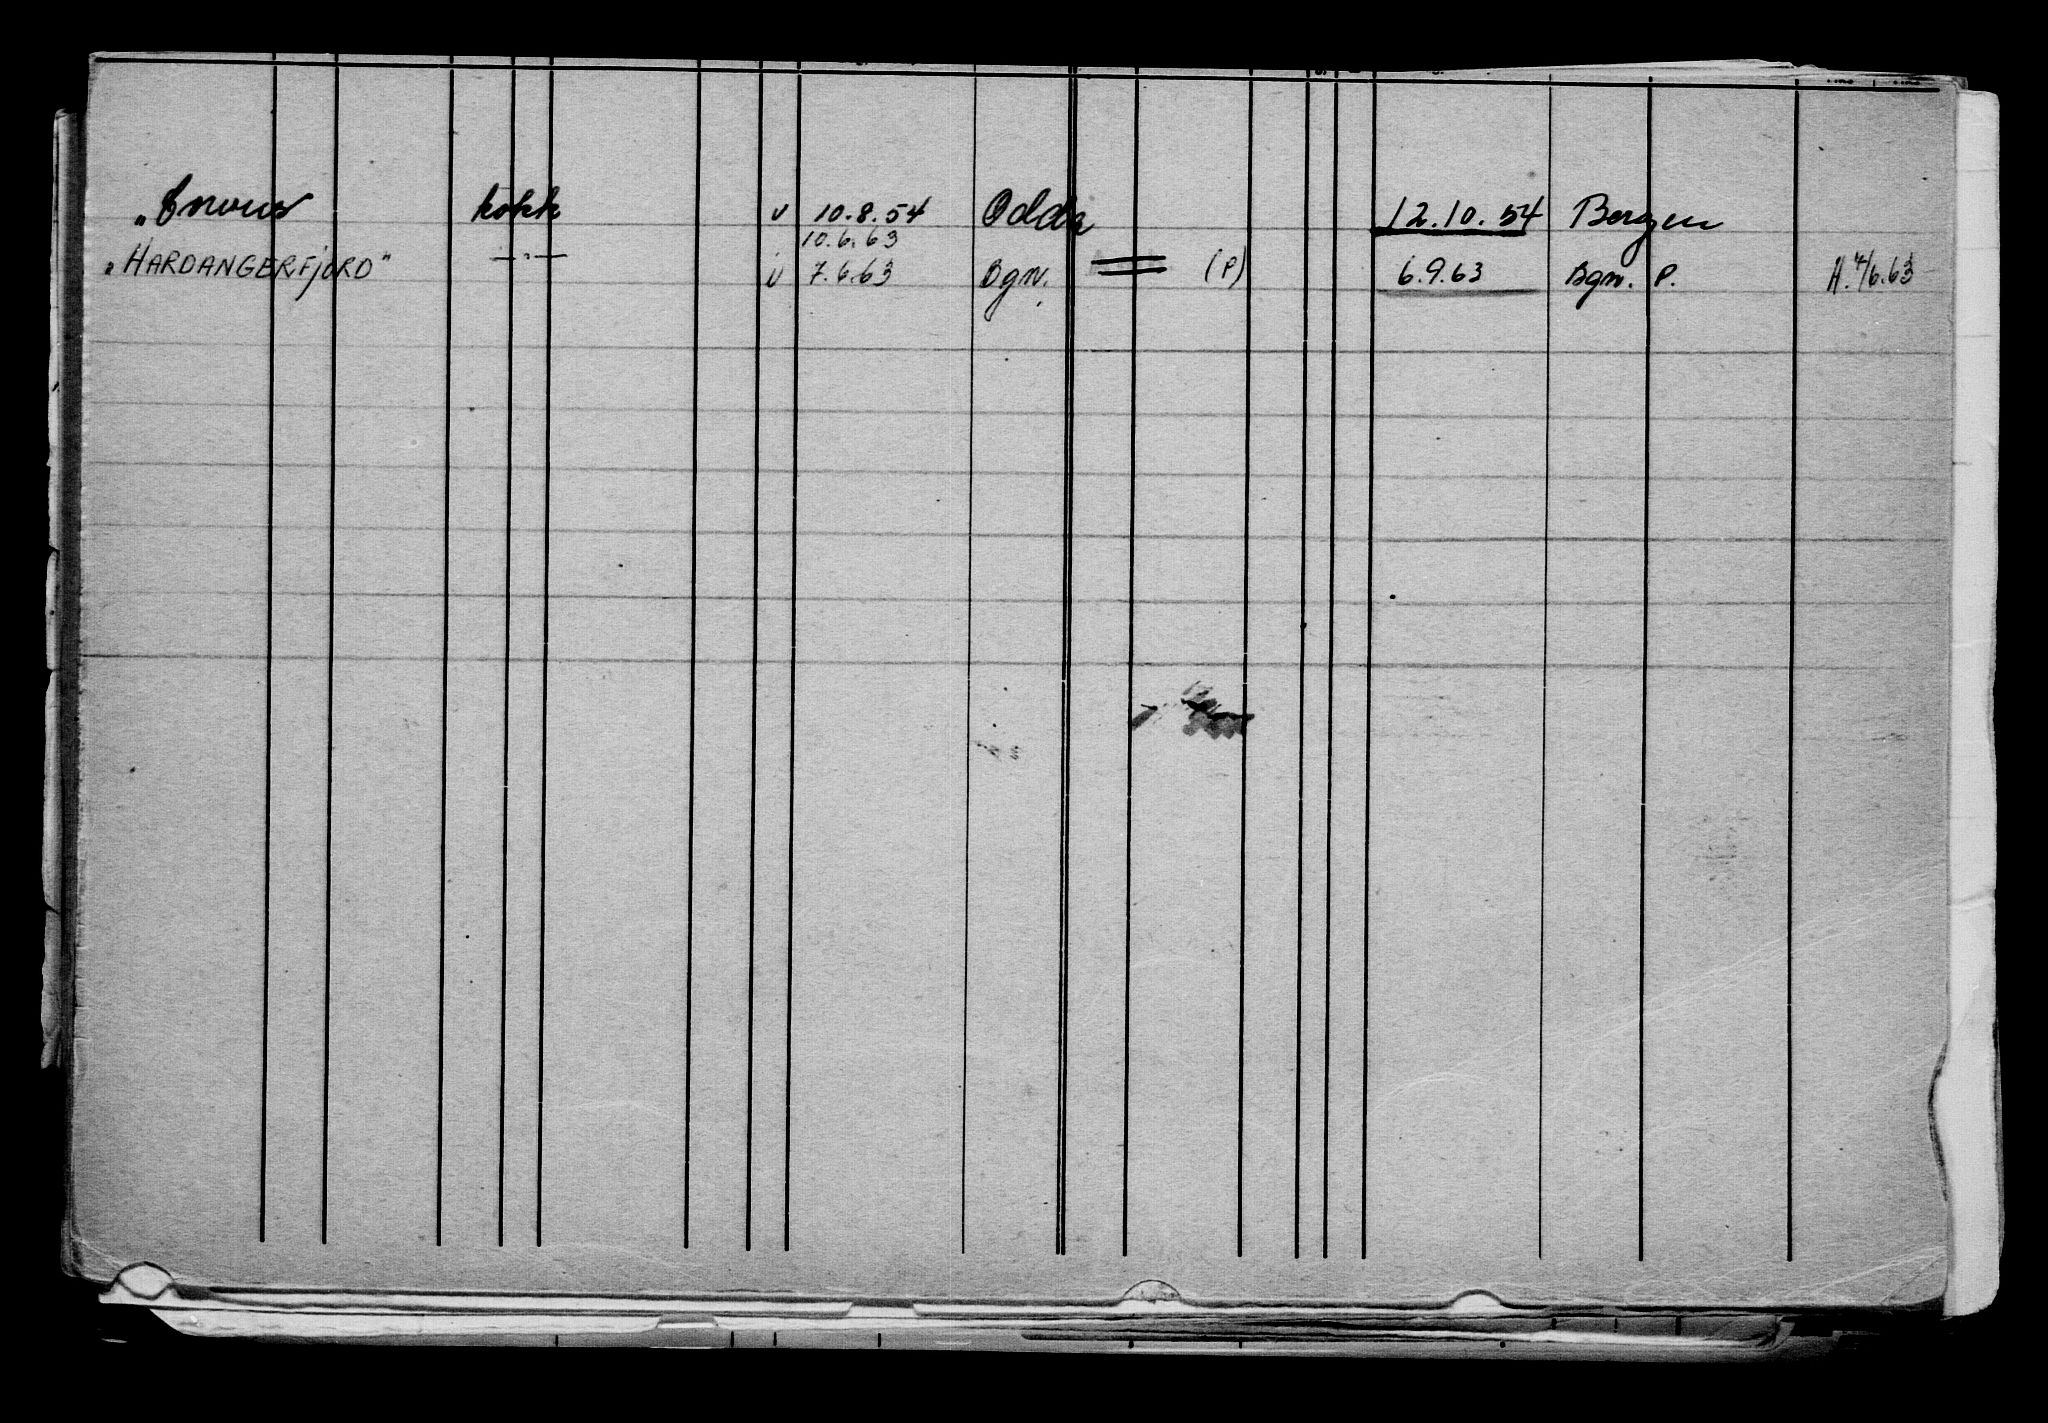 kokk v 10.8.54 Odda 12.10.54 Bergen
10.6.63
„HARDANGERFJORD" —"— v 7.6.63 Bgn. = (P) 6.9.63 Bgn. P. H. 4/6.63